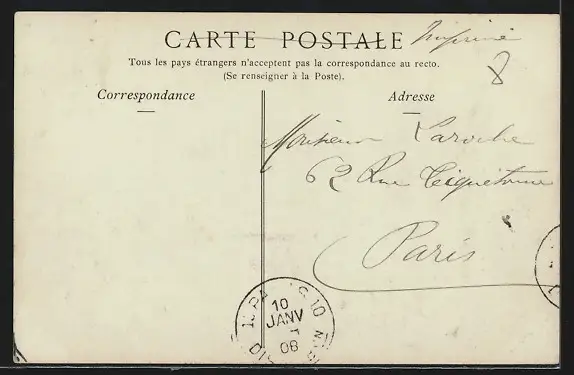 CARTE POSTALE Imprimé
Tous les pays étrangers n'acceptent pas la correspondance au recto.
(Se renseigner à la Poste).
8
Correspondance
Adresse
Monsieur Laroche
62 Rue Tiquetonne
Paris
10
JANV
08